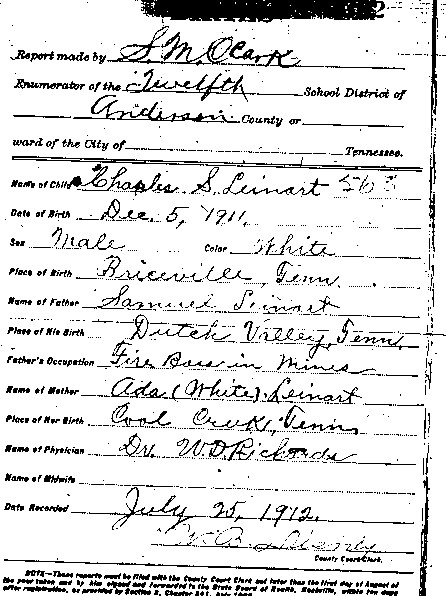 2
Report made by S. M. Clark
Enumerator of the Twelfth School District of
Anderson County or
ward of the City of Tennessee.
Name of Child Charles S. Leinart 563
Date of Birth Dec. 5, 1911.
Sex Male Color White
Place of Birth Briceville, Tenn.
Name of Father Samuel Leinart
Place of His Birth Dutch Valley, Tenn.
Father's Occupation Fire Boss in Mines
Name of Mother Ada (White) Leinart
Place of Her Birth Coal Creek, Tenn.
Name of Physician Dr. W. D. Richards
Name of Midwife
Date Recorded July 25, 1912.
W. B.
County Court Clerk.
NOTE—These reports must be filed with the County Court Clerk not later than the first day of August of
the year taken, and by him signed and forwarded to the State Board of Health, Nashville, within ten days
after registration, as provided by Section 2, Chapter